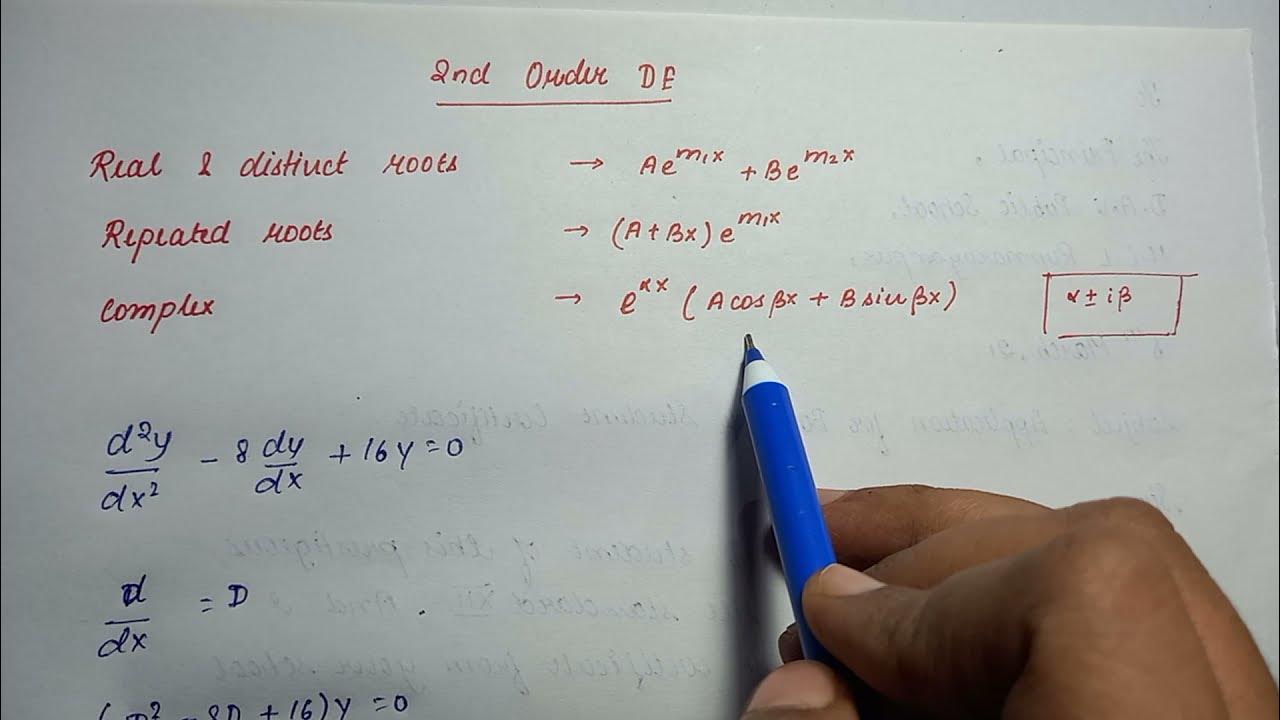 2nd Order DE
Real & distinct roots → Ae^{m₁x} + Be^{m₂x}
Repeated roots → (A + Bx) e^{m₁x}
Complex → e^{αx} (A cos βx + B sin βx)
α ± iβ
d²y/dx² - 8 dy/dx + 16y = 0
d/dx = D
(D² - 8D + 16) y = 0